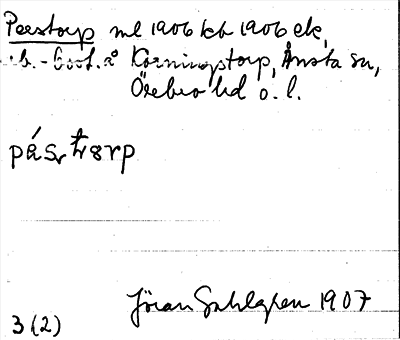 Peestorp ml 1906 kb 1906 ek,
b. - Cool. å Korningstorp, Ånsta sn,
Örebro hd o. l.
pás, tɤrp
Jöran Sahlgren 1907
3 (2)